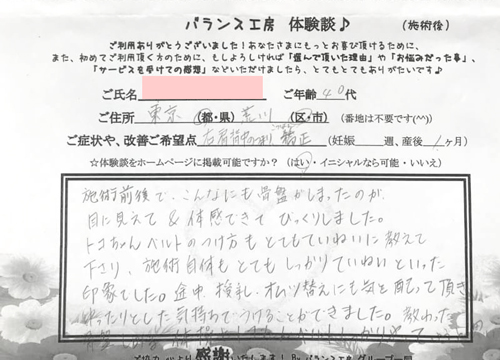 バランス工房 体験談♪ (施術後)
ご利用ありがとうございました！あなたさまにもっとお喜び頂けるために、
また、初めてご利用頂く方のために、もしよろしければ「選んで頂いた理由」や「お悩みだった事」、
「サービスを受けての感想」などいただけましたら、とてもとてもありがたいです♪
ご氏名 ご年齢 40代
ご住所 東京 都・県 荒川 区・市 (番地は不要です(^^))
ご症状や、改善ご希望点 矯正 (妊娠 週、産後 1ヶ月)
☆体験談をホームページに掲載可能ですか？ (はい・イニシャルなら可能・いいえ)
施術前後で、こんなにも骨盤がしまったのが、
目に見えて & 体感できてびっくりしました。
トコちゃんベルトのつけ方もとてもていねいに教えて
下さり、施術自体もとてもしっかりていねいといった
印象でした。途中、授乳、オムツ替えにも気を配って頂き
ゆったりとした気持ちでうけることができました。教わった
感謝